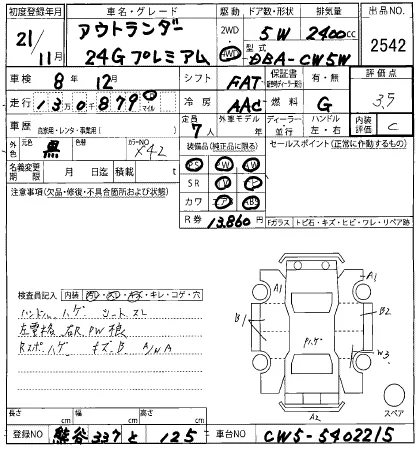 初度登録年月 車名・グレード 駆動 ドア数・形状 排気量 出品NO
21/11月 アウトランダー 2WD 5W 2400cc 2542
24Gプレミアム 4WD 型式 DBA-CW5W
車検 8年 12月 シフト FAT 保証書 有・無 評価点
走行 130879 km マイル 冷房 AAC 燃料 G 3.5
車歴 自家用・レンタ・事業用( ) 定員 7人 外車モデル 年 ディーラー 並行 ハンドル 左・右 内装評価 C
外色 元色 黒 色替 カラーNO X42 装備品(純正品に限る) セールスポイント(正常に作動するもの)
名義変更期限 月 日迄 積載 t PS PW
注意事項(欠品・修復・不具合箇所および状態) SR
カワ ABS
R券 13,860円 Fガラス トビ石・キズ・ヒビ・ワレ・リペア跡
A1 A1
B1 B2
Pハゲ
W3
検査員記入 内装 キレ・コゲ・穴
ハンドルハゲ シートスレ
A2
スペア
長さ cm 幅 cm 高さ cm
登録NO 熊谷 337 と 125 車台NO CW5-5402215